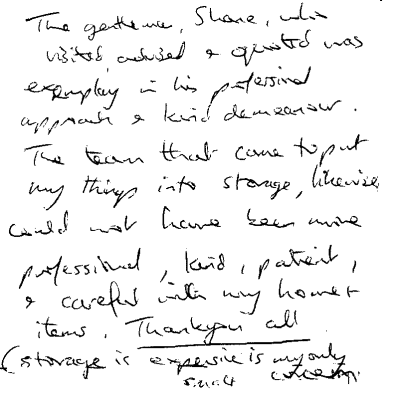 The gentleman, Shane, who
visited, advised & quoted was
exemplary in his professional
approach & kind demeanour.
The team that came to put
my things into storage, likewise
could not have been more
professional, kind, patient,
& careful with my home &
items. Thankyou all
(storage is expensive is my only
small concern).